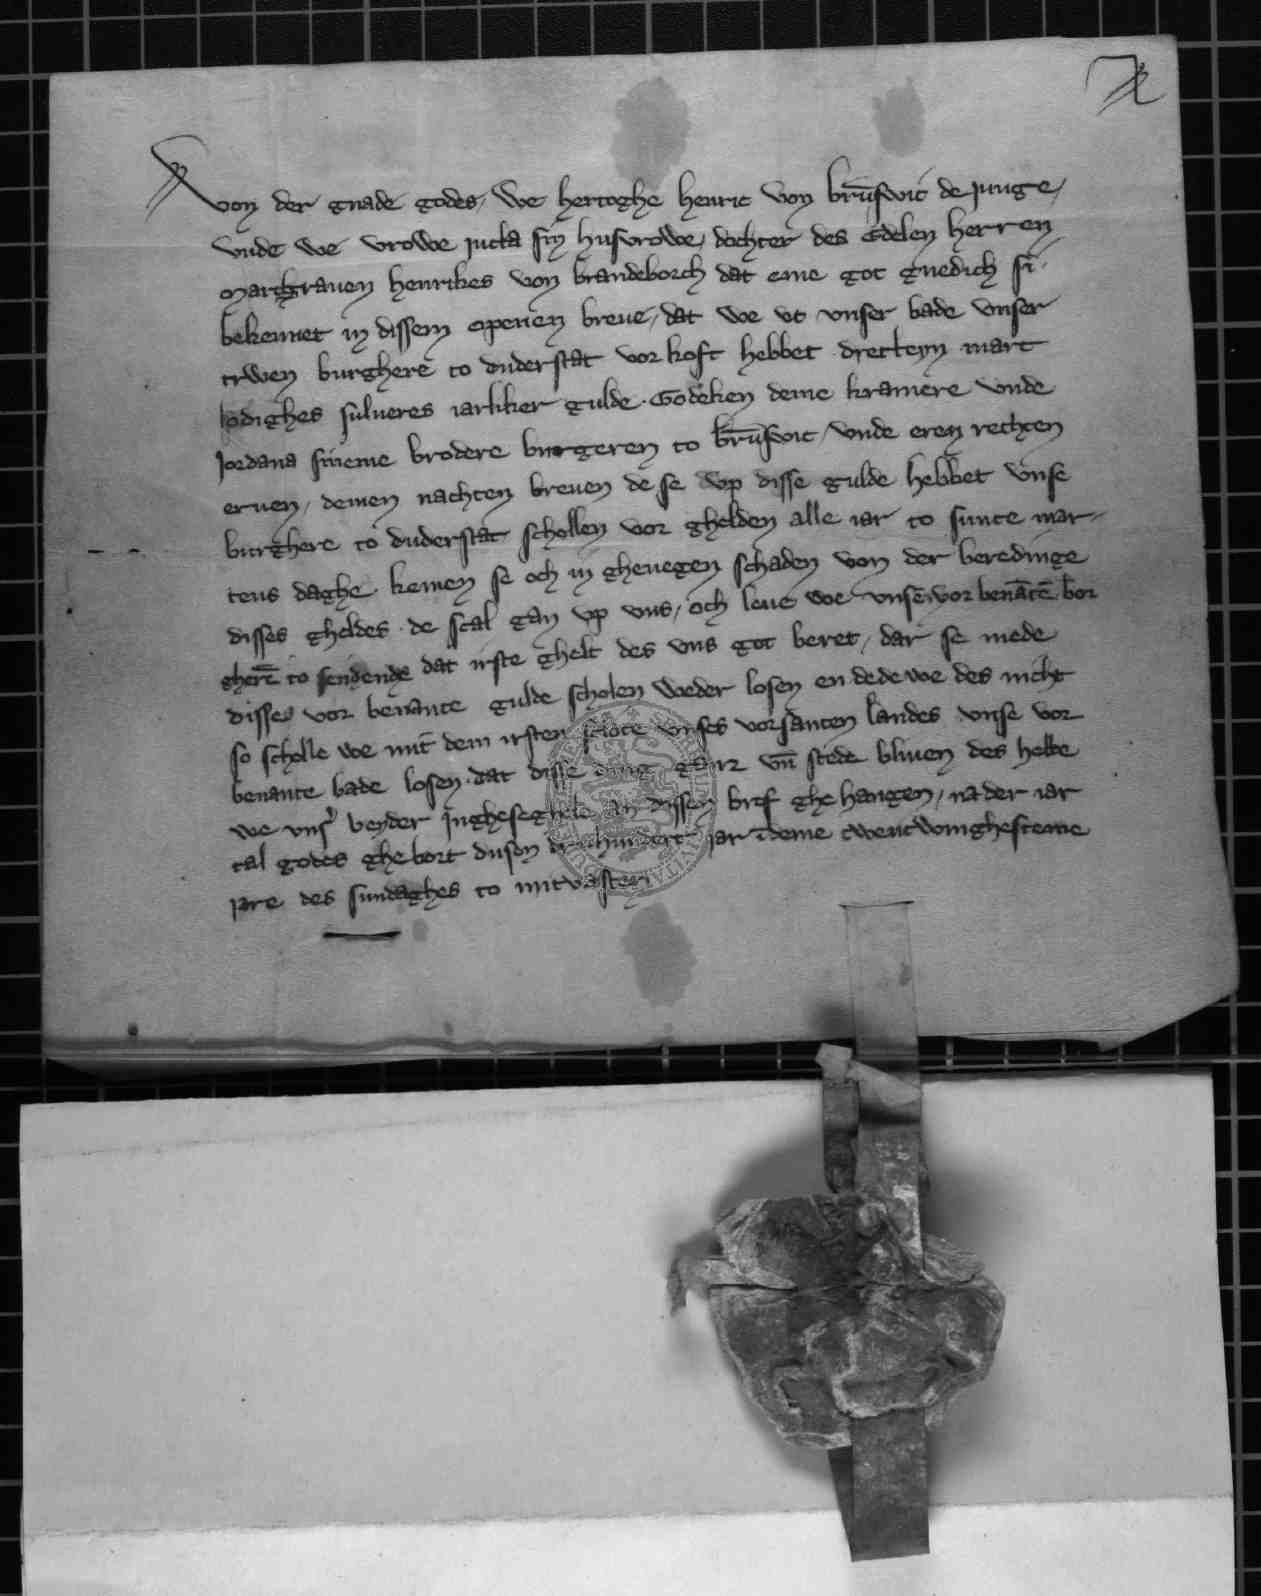 von der gnade godes, we hertoghe henric von brūswic de junge,
vnde we vrowe jutta sin husvrowe, dochter des Edelen herren
Marchgrauen henrikes von brandeborch dat eme got gnedich si.
bekennet in dissem openen breue, dat we vt vnser bade vnser
trwen burghere to duderstat vor koft hebbet dretteyn marc
lodighes sulueres iarliker gulde. Godeken deme kramere vnde
Jordana sineme brodere burgeren to brūswic, vnde eren rechten
eruen, demen nachten breuen de se vp disse gulde hebbet vnse
burghere to duderstat schollen vor ghelden alle iar to sunte mar-
tens daghe. kemen se och in ghenegen schaden von der beredinge
disses gheldes. de scal gan vp vns, och loue we vnsē vor benātē bor
gherē to sendende dat irste ghelt des vns got beret, dar se mede
disse vor benante gulde scholen weder losen en dede we des nicht
so scholle we mit dem irsten scote vnses vorsanten landes vnse vor
benante bade losen. dat disse ding ganz vn̄ stede bliuen des hebbe
we vnser beyder Jngheseghele an dissen bref ghe hangen, na der iar
tal godes ghe bort dusen drihundert jar ī deme twentwinghesteme
jare des sundaghes to mitvasten